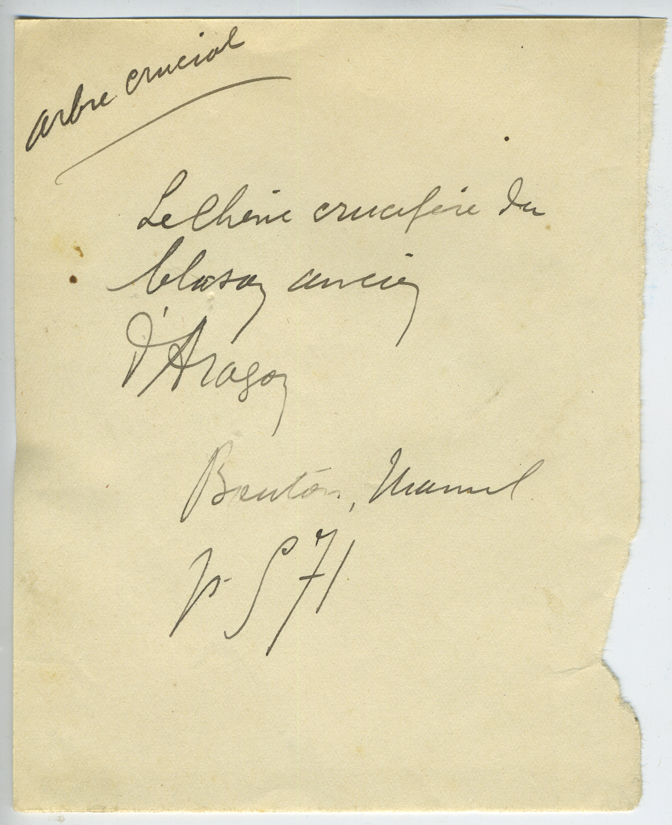 arbre crucial
Le Chêne crucifère du
blason ancien
d'Aragon
Manuel
p. 571